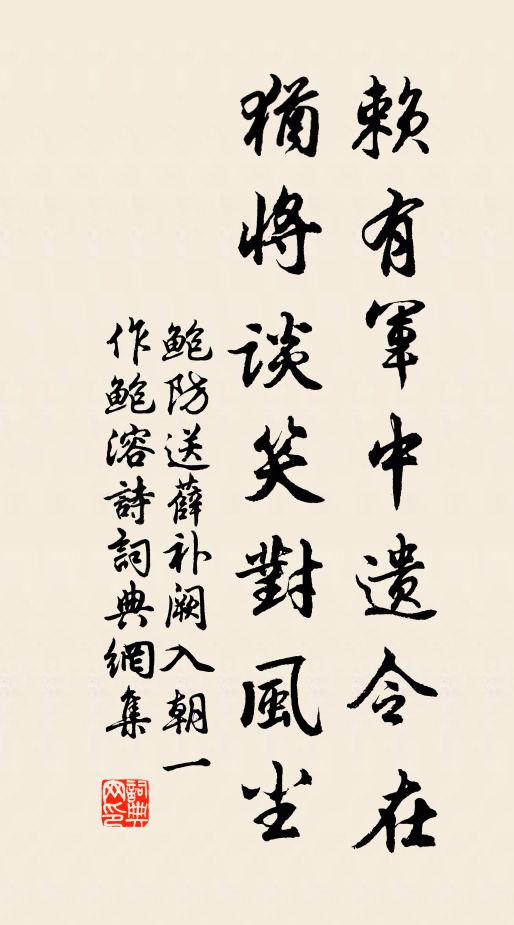 賴有軍中遺令在
猶將談笑對風尘
鲍防送薛补阙入朝一
作鲍溶詩詞典網集
詞典网印